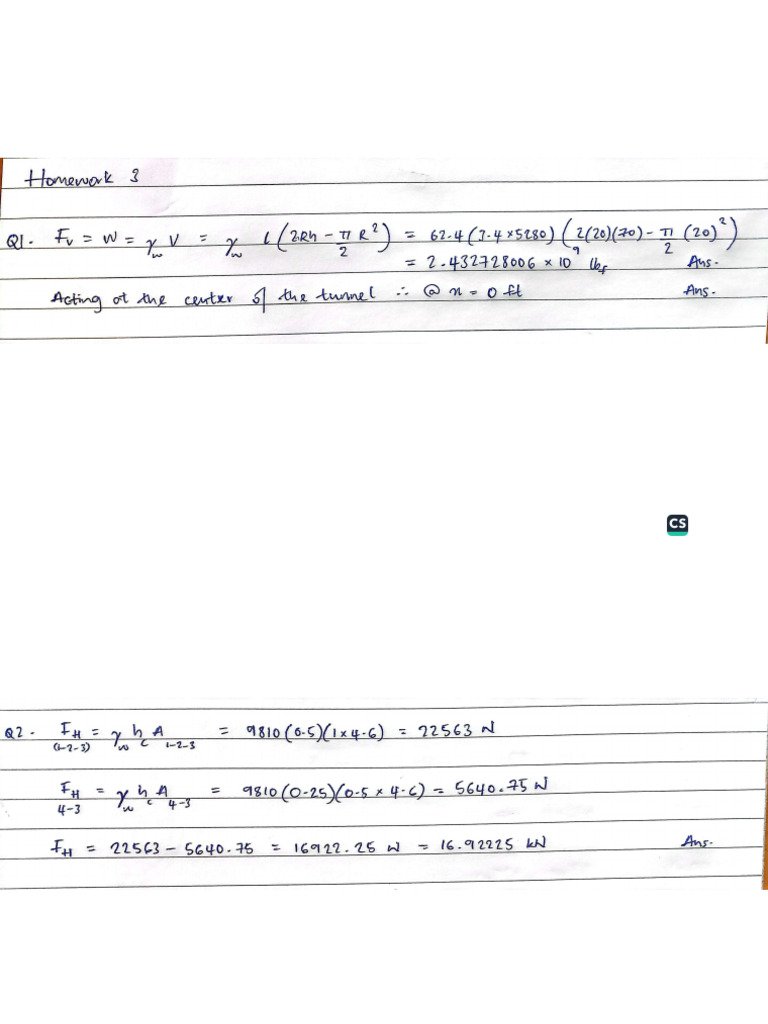 Homework 3
Q1. F_V = W = γ_w V = γ_w L (2Rh - π/2 R²) = 62.4 (3.4 × 5280) (2(20)(70) - π/2 (20)²)
= 2.432728006 × 10⁹ lb_f Ans.
Acting at the center of the tunnel ∴ @ x = 0 ft Ans.
CS
Q2. F_H (1-2-3) = γ_w h_c A_1-2-3 = 9810 (0.5)(1 × 4.6) = 22563 N
F_H 4-3 = γ_w h_c A_4-3 = 9810 (0.25)(0.5 × 4.6) = 5640.75 N
F_H = 22563 - 5640.75 = 16922.25 N = 16.92225 kN Ans.